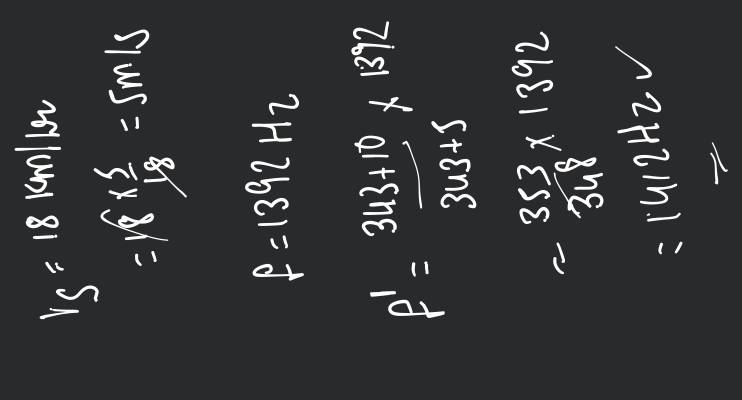 VS = 18 Km/hr
= 18 x 5/18 = 5m/s
f = 1392 Hz
f' = 343+10/343+5 x 1392
= 353/348 x 1392
= 1412Hz ✓